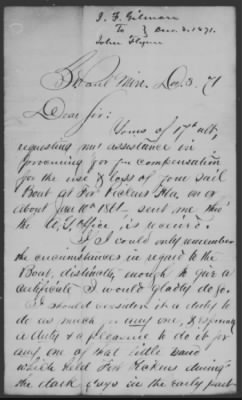 J. F. Gilman
To } Dec. 3. 1871.
John Flynn
St Paul Min. Dec. 3. 71
Dear Sir:
Yours of 17th ult,
requesting my assistance in
procuring for you compensation
for the use & loss of your sail
Boat at Fort Pickens Fla, on or
about Jany 10th 1861 sent me thro'
the A. G. Office, is received.
If I could only remember
the circumstances in regard to the
Boat, distinctly enough to give a
certificate I would gladly do so.
I should consider it a duty to
do as much for any one, & especially
a duty & a pleasure to do it for
any one of that little band
which held Fort Pickens during
the dark days in the early part